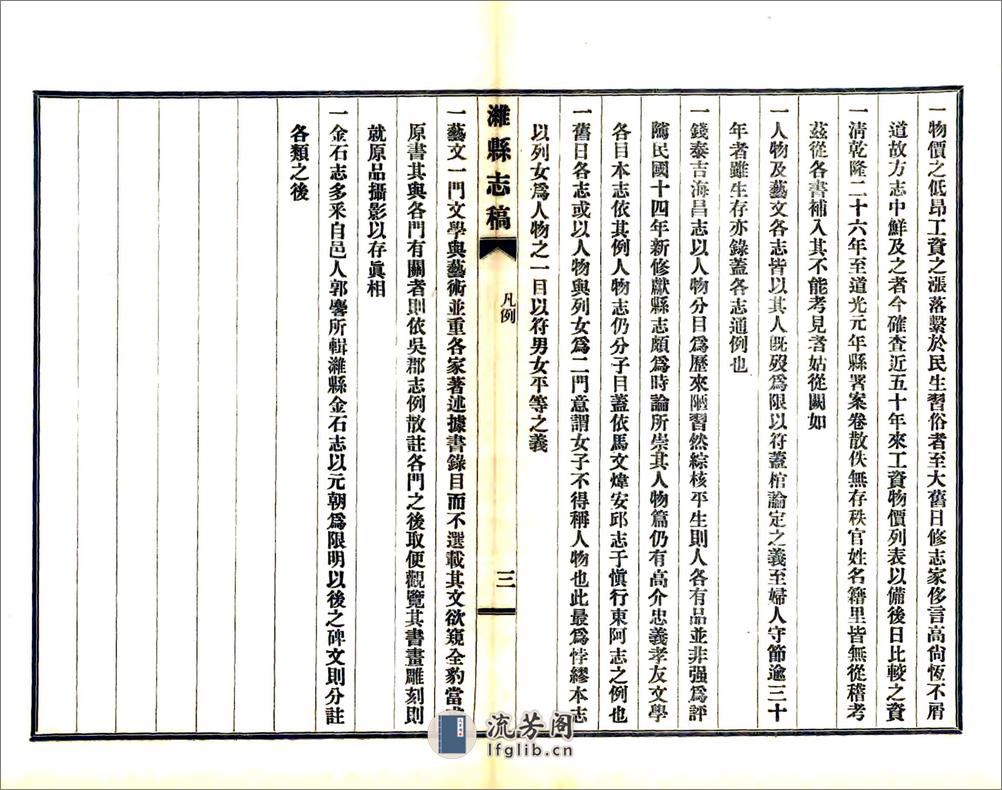 一物價之低昂工資之漲落繫於民生習俗者至大舊日修志家侈言高尙恆不屑
道故方志中鮮及之者今確查近五十年來工資物價列表以備後日比較之資
一淸乾隆二十六年至道光元年縣署案卷散佚無存秩官姓名籍里皆無從稽考
茲從各書補入其不能考見者姑從闕如
一人物及藝文各志皆以其人既歿爲限以符蓋棺論定之義至婦人守節逾三十
年者雖生存亦錄蓋各志通例也
一錢泰吉海昌志以人物分目爲歷來陋習然綜核平生則人各有品並非强爲評
隲民國十四年新修獻縣志頗爲時論所崇其人物篇仍有高介忠義孝友文學
各目本志依其例人物志仍分子目蓋依馬文煒安邱志于愼行東阿志之例也
一舊日各志或以人物與列女爲二門意謂女子不得稱人物也此最爲悖繆本志
以列女爲人物之一目以符男女平等之義
濰縣志稿
凡例
三
一藝文一門文學與藝術並重各家著述據書錄目而不選載其文欲窺全豹當
原書其與各門有關者則依吳郡志例散註各門之後取便觀覽其書畫雕刻則
就原品攝影以存眞相
一金石志多釆自邑人郭麐所輯濰縣金石志以元朝爲限明以後之碑文則分註
各類之後
流芳阁
lfglib.cn